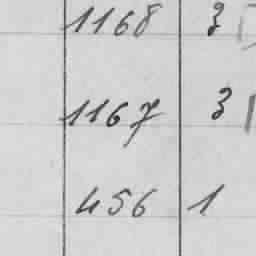 1168 3
1167 3
456 1